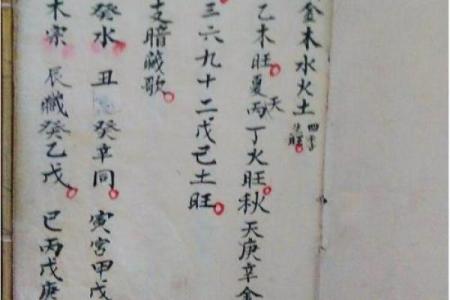 金木水火土四季
乙木旺夏天丙丁火旺秋天庚辛金
三六九十二戊己土旺
支暗藏歌
癸水丑癸辛同寅宫甲戊
木宗辰藏癸乙戊巳丙戊庚